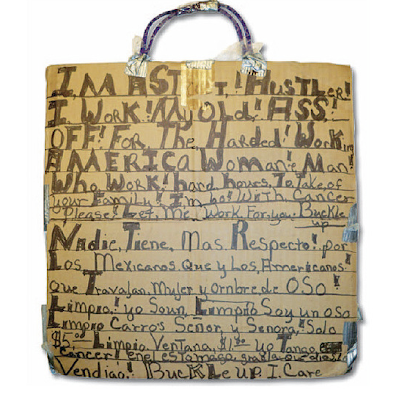 I'M A ST I, ! HUSTLER!
I. WORK! My OLd! ASS!
OFF! FOR The HARded! WORKing
AMERICA WOMAN & MAN!
Who WORK! hard hours, To Take, of
your Family! I'm ho! With Cancer
Please! Let, Me, Work For, you, Buckle up
Nadie, Tiene, Mas, Respecto! por
Los, Mexicanos, Que y Los, Americanos!
que Travajan, Mujer y ombre, de OSO!
Limpio! yo Soun, Limpio Soy un oso
Limpio Carros Señor, y Senora! Solo
$5.00 Limpio Ventana, $1.00 yo Tango
Cancer! enel estomago, que dios!
Vendiao! BuCKLe UP. I. Care